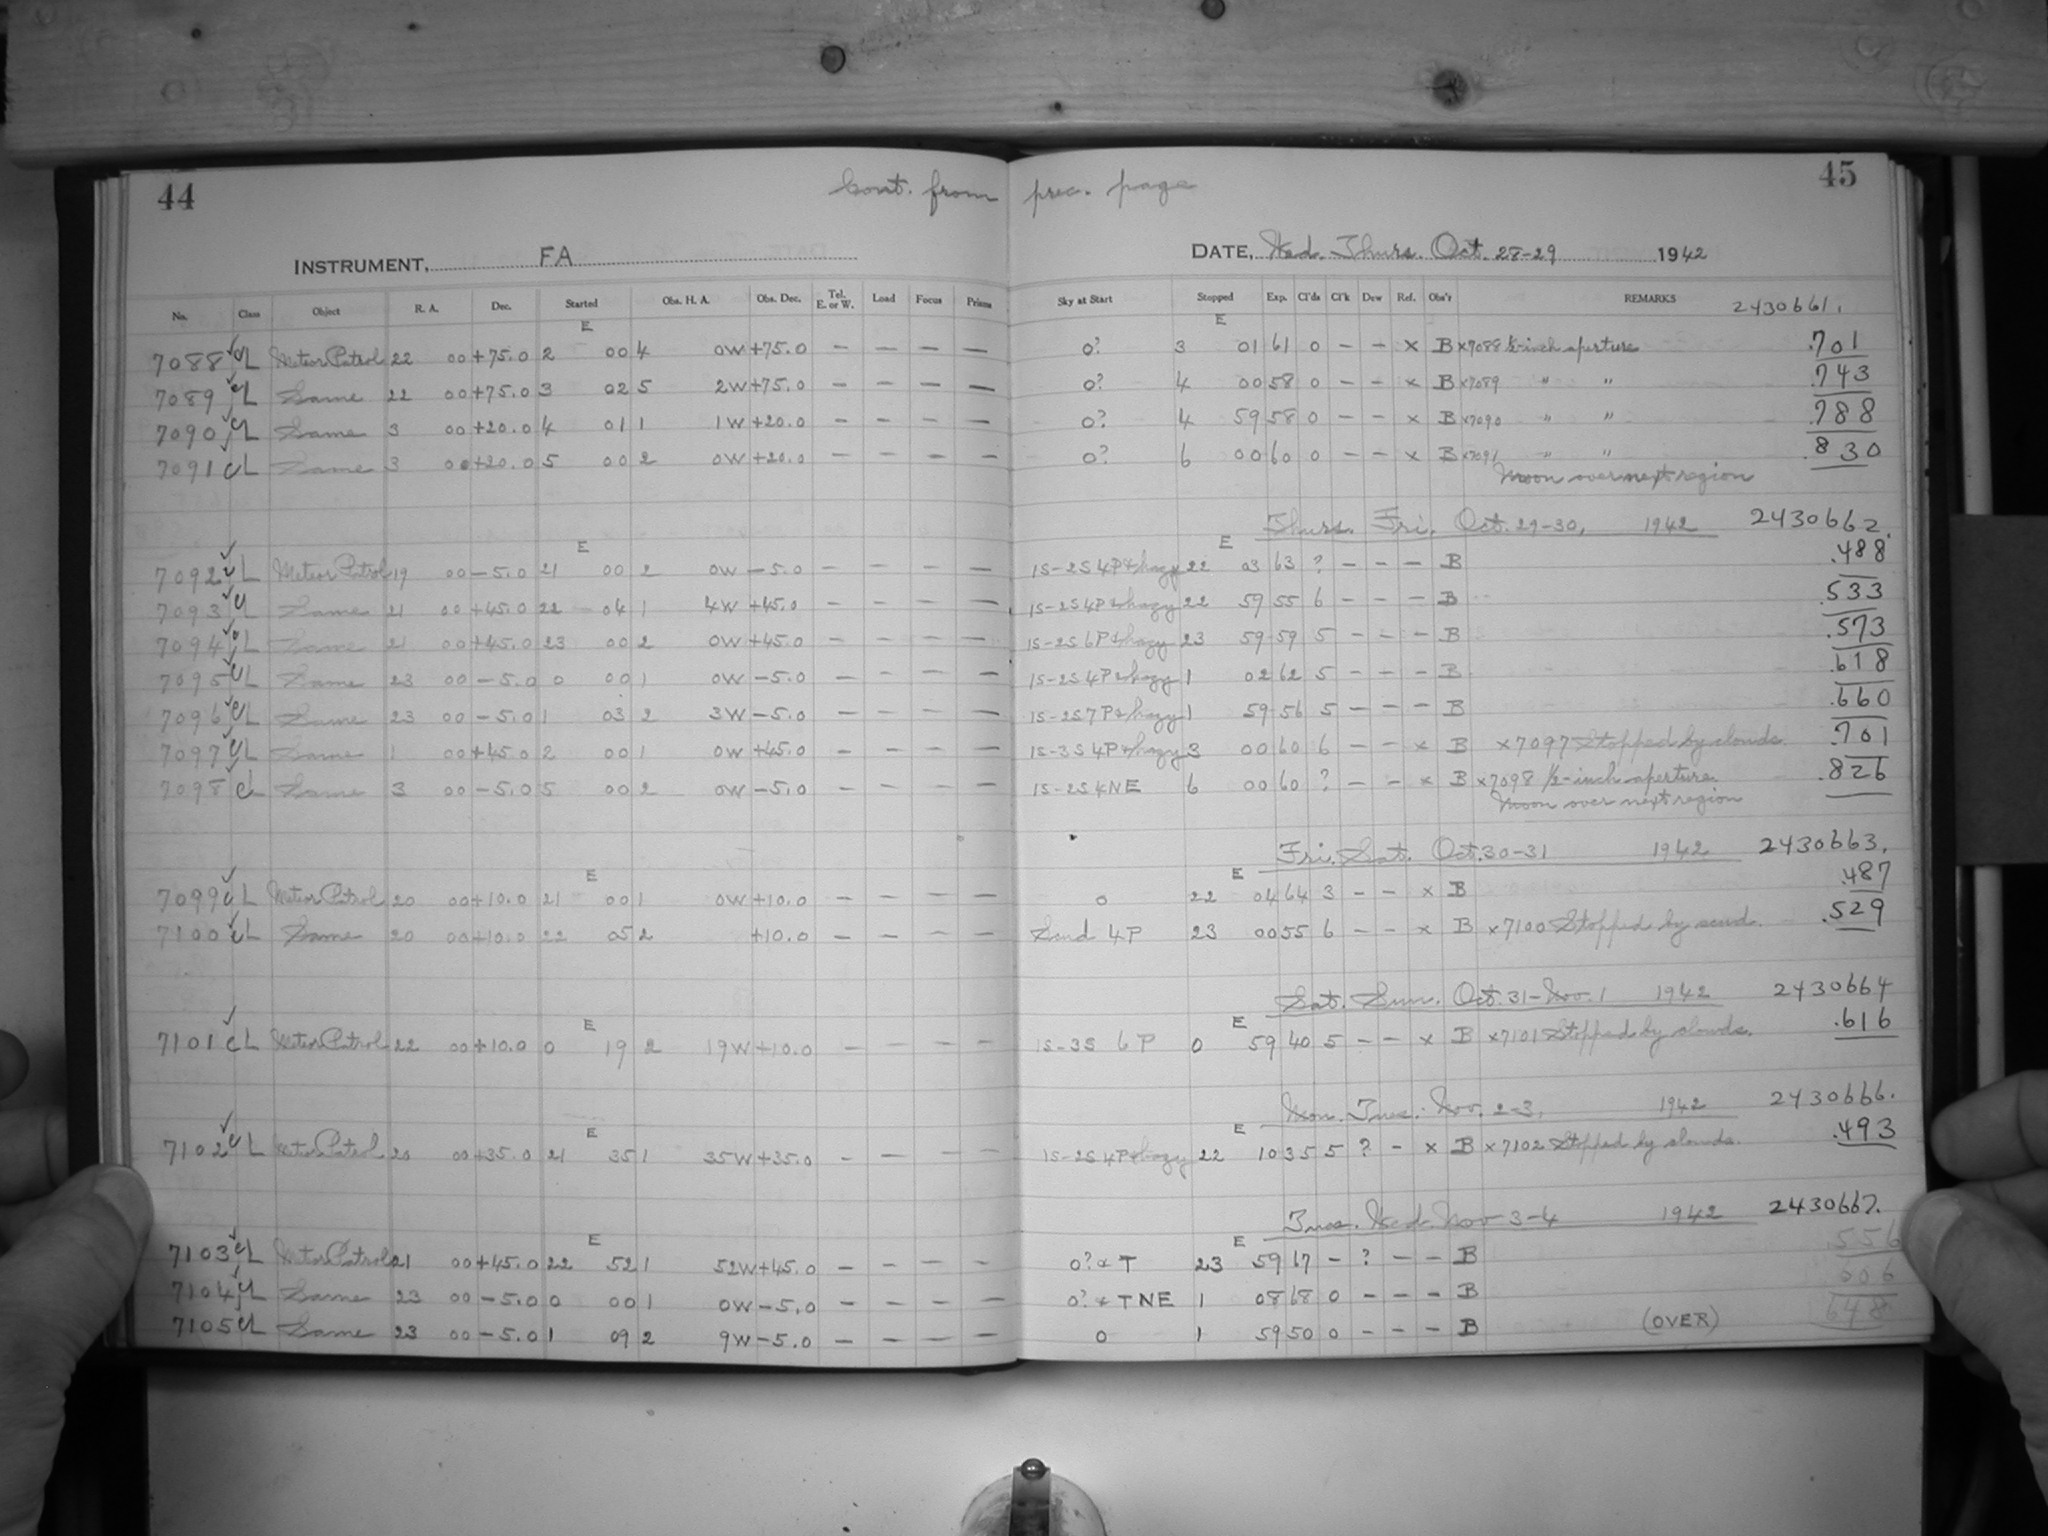 44 Cont. from prec. page 45
INSTRUMENT, FA DATE, Wed. Thurs. Oct. 28-29 1942
No. Class Object R. A. Dec. Started Obs. H. A. Obs. Dec. Tel. E. or W. Load Focus Prisms Sky at Start Stopped Exp. Cl'ds Cl'k Dew Ref. Obs'r REMARKS 2430661.
E E
7088 CL Meteor Patrol 22 00 +75.0 2 00 4 0W +75.0 – – – – 0? 3 01 61 0 – – x B x7088 ½-inch aperture .701
7089 CL Same 22 00 +75.0 3 02 5 2W +75.0 – – – – 0? 4 00 58 0 – – x B x7089 " " .743
7090 CL Same 3 00 +20.0 4 01 1 1W +20.0 – – – – 0? 4 59 58 0 – – x B x7090 " " .788
7091 CL Same 3 00 +20.0 5 00 2 0W +20.0 – – – – 0? 6 00 60 0 – – x B x7091 " " .830
Moon over next region
Thurs. Fri. Oct. 29-30, 1942 2430662.
E E
7092 CL Meteor Patrol 19 00 –5.0 21 00 2 0W –5.0 – – – – 1S-2S 4P & hazy 22 03 63 ? – – – B .488
7093 CL Same 21 00 +45.0 22 04 1 4W +45.0 – – – – 1S-2S 4P & hazy 22 59 55 6 – – – B .533
7094 CL Same 21 00 +45.0 23 00 2 0W +45.0 – – – – 1S-2S 6P & hazy 23 59 59 5 – – – B .573
7095 CL Same 23 00 –5.0 0 00 1 0W –5.0 – – – – 1S-2S 4P & hazy 1 02 62 5 – – – B .618
7096 CL Same 23 00 –5.0 1 03 2 3W –5.0 – – – – 1S-2S 7P & hazy 1 59 56 5 – – – B .660
7097 CL Same 1 00 +45.0 2 00 1 0W +45.0 – – – – 1S-3S 4P & hazy 3 00 60 6 – – x B x7097 Stopped by clouds. .701
7098 CL Same 3 00 –5.0 5 00 2 0W –5.0 – – – – 1S-2S 4NE 6 00 60 ? – – x B x7098 ½-inch aperture. .826
Moon over next region
Fri. Sat. Oct. 30-31 1942 2430663.
E E
7099 CL Meteor Patrol 20 00 +10.0 21 00 1 0W +10.0 – – – – 0 22 04 64 3 – – x B .487
7100 CL Same 20 00 +10.0 22 05 2 +10.0 – – – – 4P 23 00 55 6 – – x B x7100 Stopped by scud. .529
Sat. Sun. Oct. 31-Nov. 1 1942 2430664
E E
7101 CL Meteor Patrol 22 00 +10.0 0 19 2 19W +10.0 – – – – 1S-3S 6P 0 59 40 5 – – x B x7101 Stopped by clouds. .616
Mon. Tues. Nov. 2-3, 1942 2430666.
E E
7102 CL Meteor Patrol 20 00 +35.0 21 35 1 35W +35.0 – – – – 1S-2S 4P & hazy 22 10 35 5 ? – x B x7102 Stopped by clouds. .493
Tues. Wed. Nov 3-4 1942 2430667.
E E
7103 CL Meteor Patrol 21 00 +45.0 22 52 1 52W +45.0 – – – – 0? & T 23 59 67 – ? – – B .556
7104 CL Same 23 00 –5.0 0 00 1 0W –5.0 – – – – 0? & TNE 1 08 68 0 – – – B .606
7105 CL Same 23 00 –5.0 1 09 2 9W –5.0 – – – – 0 1 59 50 0 – – – B (OVER) .648